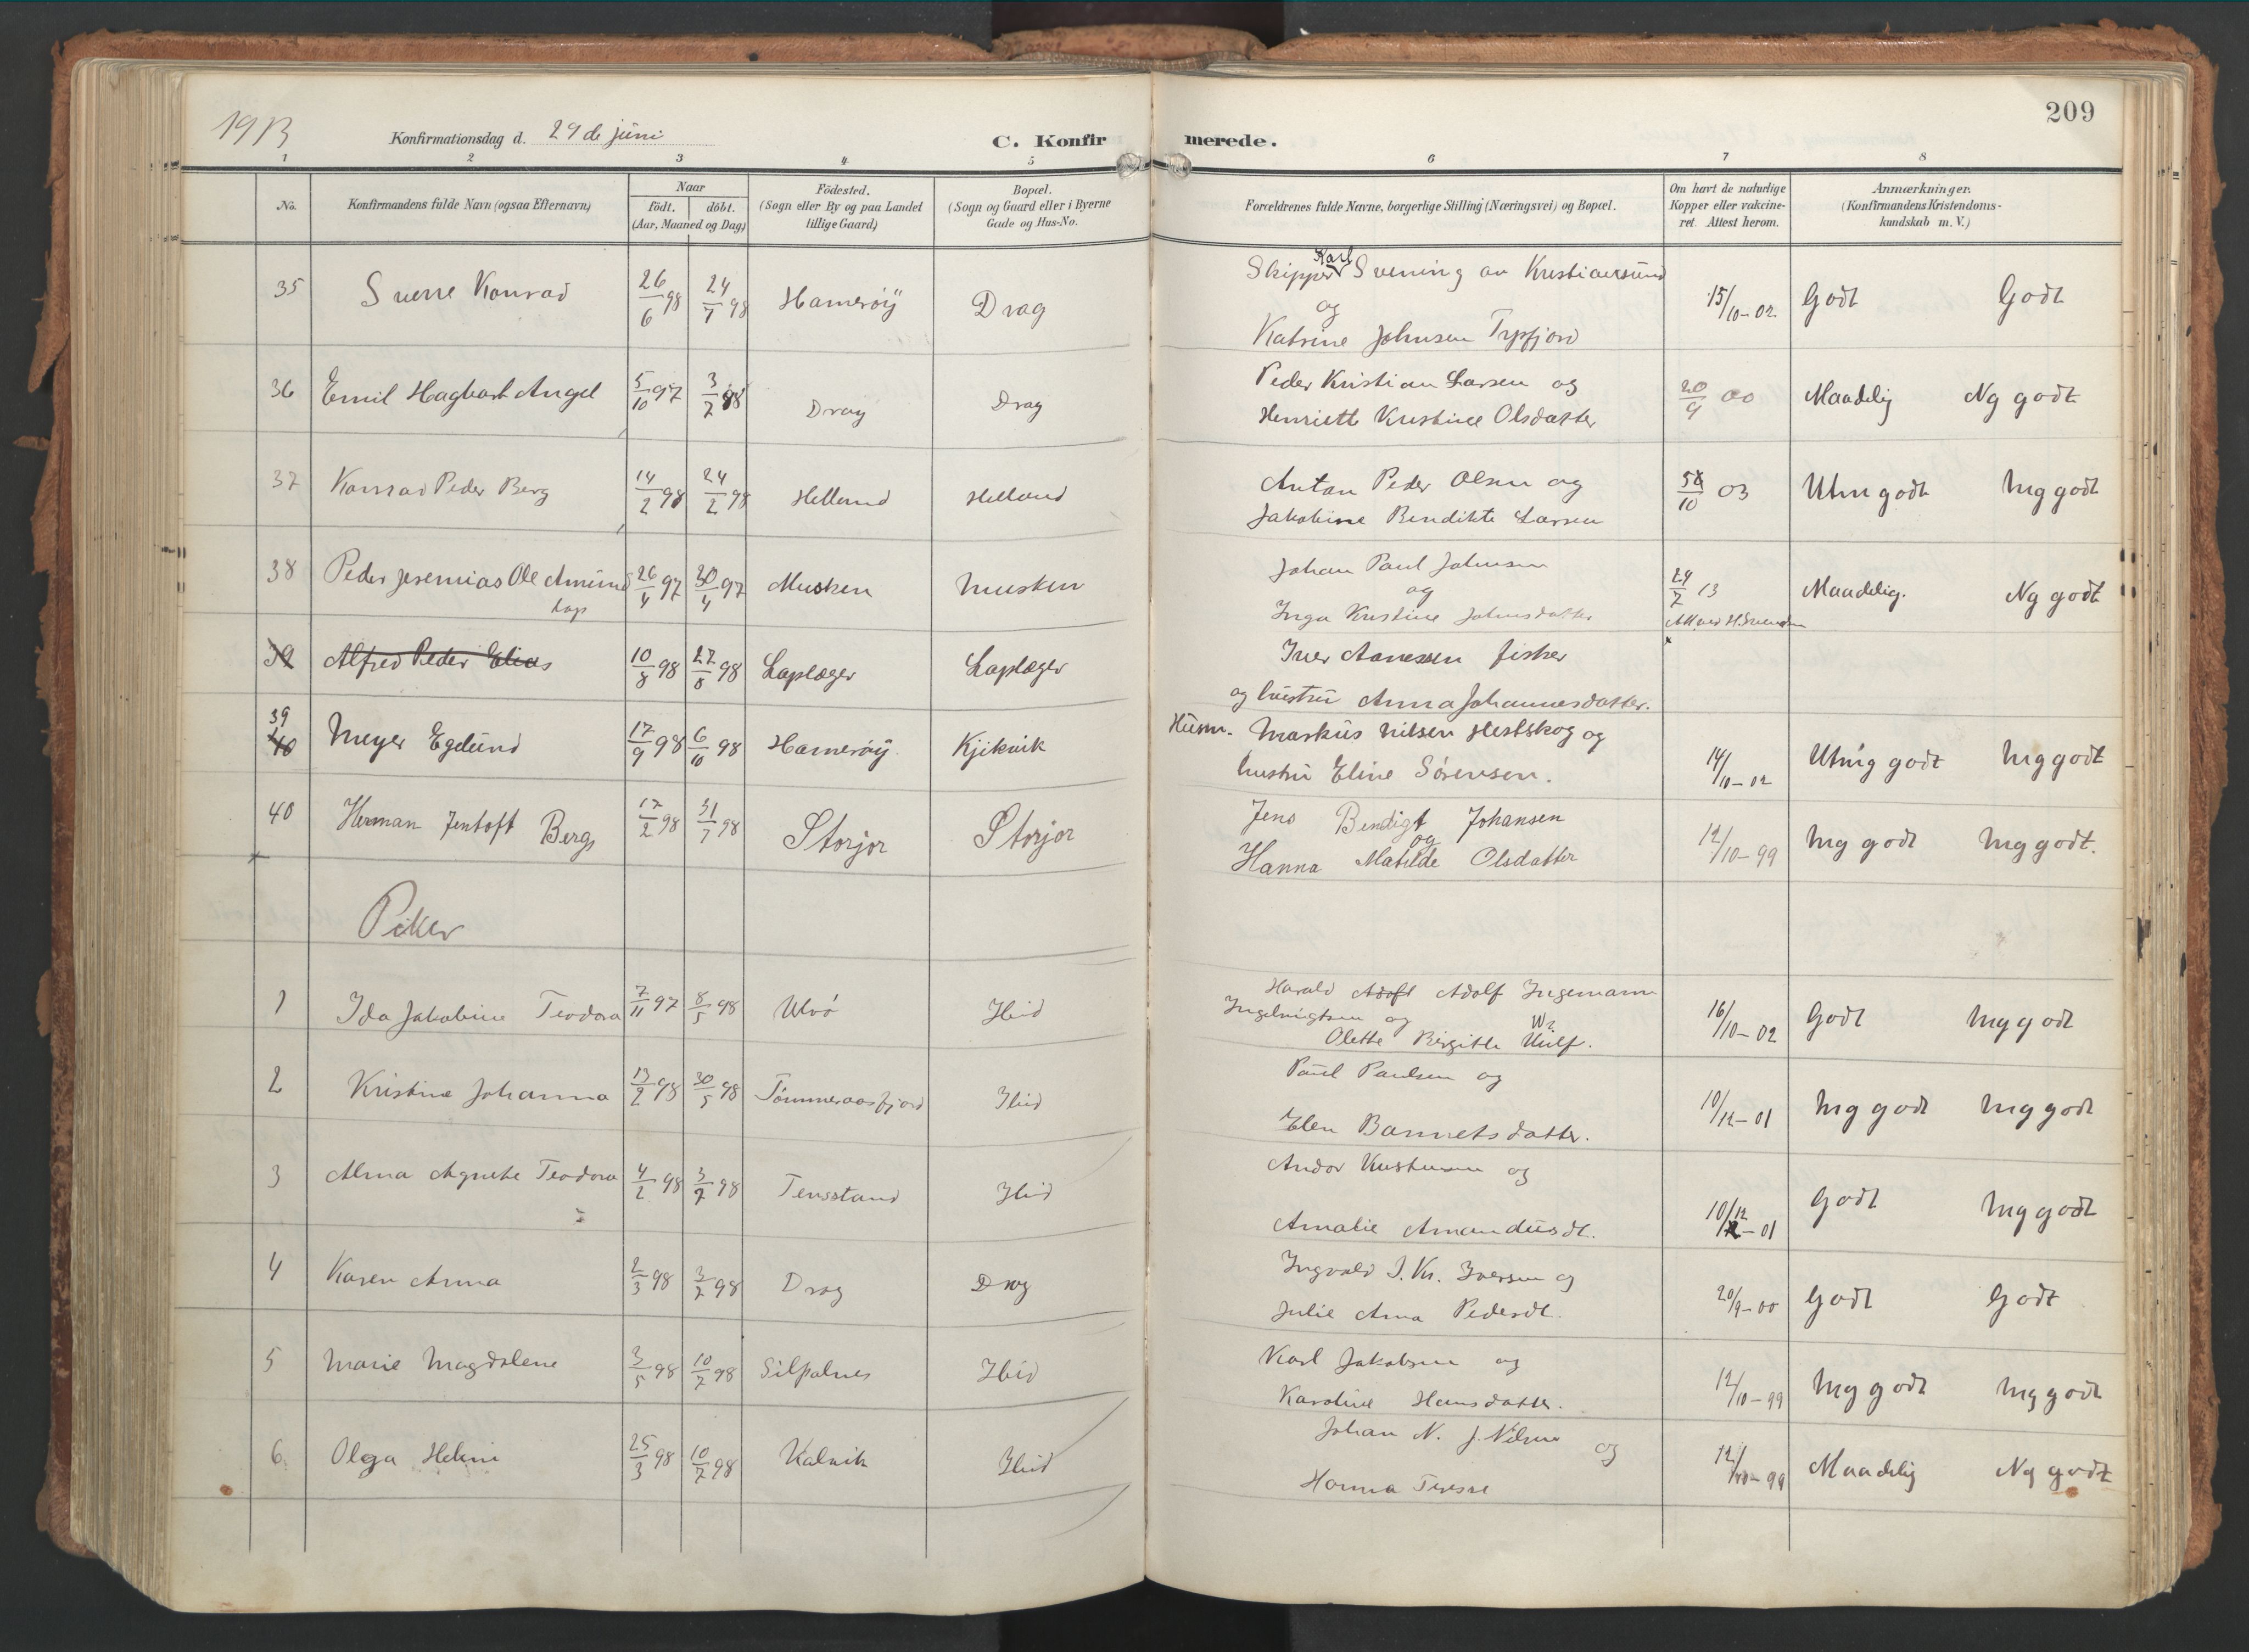 209
1913 Konfirmationsdag d. 29 de juni C. Konfirmerede.
1 2 3 4 5 6 7 8
No.
Konfirmandens fulde Navn (ogsaa Efternavn)
Naar
födt. döbt.
(Aar, Maaned og Dag)
Födested.
(Sogn eller By og paa Landet
tillige Gaard)
Bopæl.
(Sogn og Gaard eller i Byerne
Gade og Hus-No.
Forældrenes fulde Navne, borgerlige Stilling (Næringsvei) og Bopæl.
Om havt de naturlige
Kopper eller vakcine-
ret. Attest herom.
Anmærkninger.
(Konfirmandens Kristendoms-
kundskab m. V.)
35 Sverre Konrad 26/6 98 24/7 98 Hamerøÿ Drag
Skipper Karl Svening av Kristiansund
og
Katrine Johnsen Tysfjord
15/10-02 Godt Godt
36 Emil Hagbart Angel 5/10 97 3/7 98 Drag Drag
Peder Kristian Larsen og
Henriette Kristine Olsdatter
20/9 00 Maadelig Ng godt
37 Konrad Peder Berg 14/2 98 24/2 98 Helland Helland
Anton Peder Olsen og
Jakobine Bendikte Larsen
10 03 Utm godt Mg godt
38 Peder Jeremias Ole Amund 26/4 97 30/4 97 Musken Musken
Lap
Johan Paul Johnsen
og
Inga Kristine Johnsdatter
29/7 13
Maadelig. Ng godt
39 Alfred Peder Elias 10/8 98 27/8 98 Laplæger Laplæger
Iver Aanessen fisker
og hustru Anna Johannesdatter.
39
40 Meyer Egelund 17/9 98 6/10 98 Hamerøÿ Kjikvik
Husm. Markus Nilsen Hestskog og
hustru Eline Sørensen.
14/10-02 Utmg godt Mg godt
40 Herman Jentoft Berg 17/2 98 31/7 98 Storjor Storjor
Jens Bendigt Johansen
og
Hanna Matilde Olsdatter
12/10-99 Mg godt Mg godt.
Piker
1 Ida Jakobine Teodora 7/11 97 8/5 98 Ulvø Ibid
Harald Adolf Adolf Ingemann
Ingebrigtsen og
Olette Birgitte Wulf.
16/10-02 Godt Mg godt
2 Kristine Johanna 13/2 98 30/5 98 Tømmeraasfjord Ibid
Paul Paulsen og
Elen Bannetsdatter.
10/12-01 Mg godt Mg godt
3 Alma Agnete Teodora 4/2 98 3/7 98 Ibid
Andor Kristensen og
Amalie Amandusdt.
10/12-01 Godt Mg godt
4 Karen Anna 2/3 98 3/7 98 Drag Drag
Ingvald J. Kr. Iversen og
Julie Anna Pedersdt.
20/9-00 Godt Godt
5 Marie Magdalene 3/5 98 10/7 98 Silpalnes Ibid
Karl Jakobsen og
Karoline Hansdatter.
12/10-99 Mg godt Mg godt
6 Olga Helene 25/3 98 10/7 98 Kalvik Ibid
Johan N. J. Nilsen og
Hanna Terese
12/10-99 Maadelig Ng godt